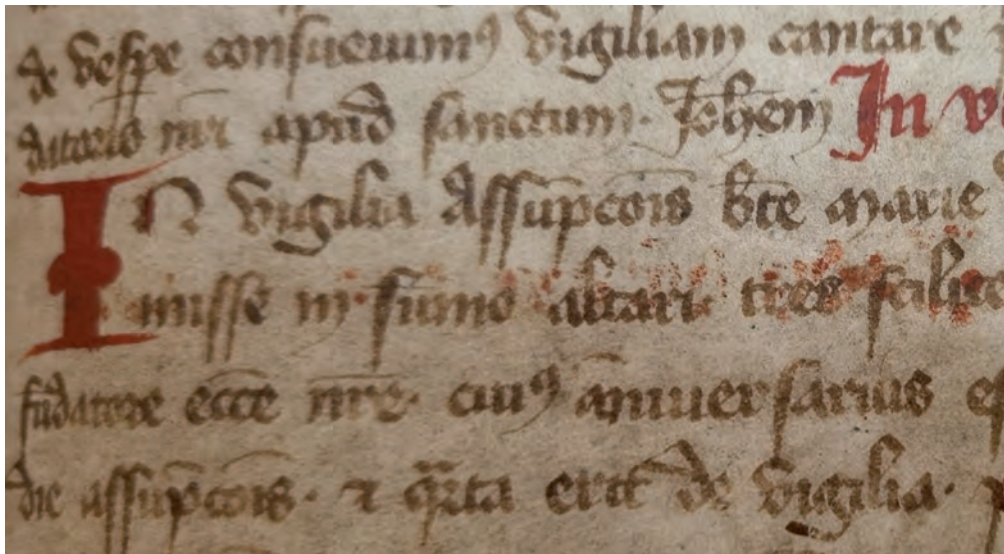 de vespe consueuim⁹ vigiliam cantare
datoris nri apud sanctum Ioħem In v
IN vigilia Assūpcōis bt̄e Marie
misse in sūmo altari tres scilic
fūdatore ecc̄e nr̄e cui⁹ anniuersarius es
die assūpcōis ⁊ qᵃrta erit de vigilia